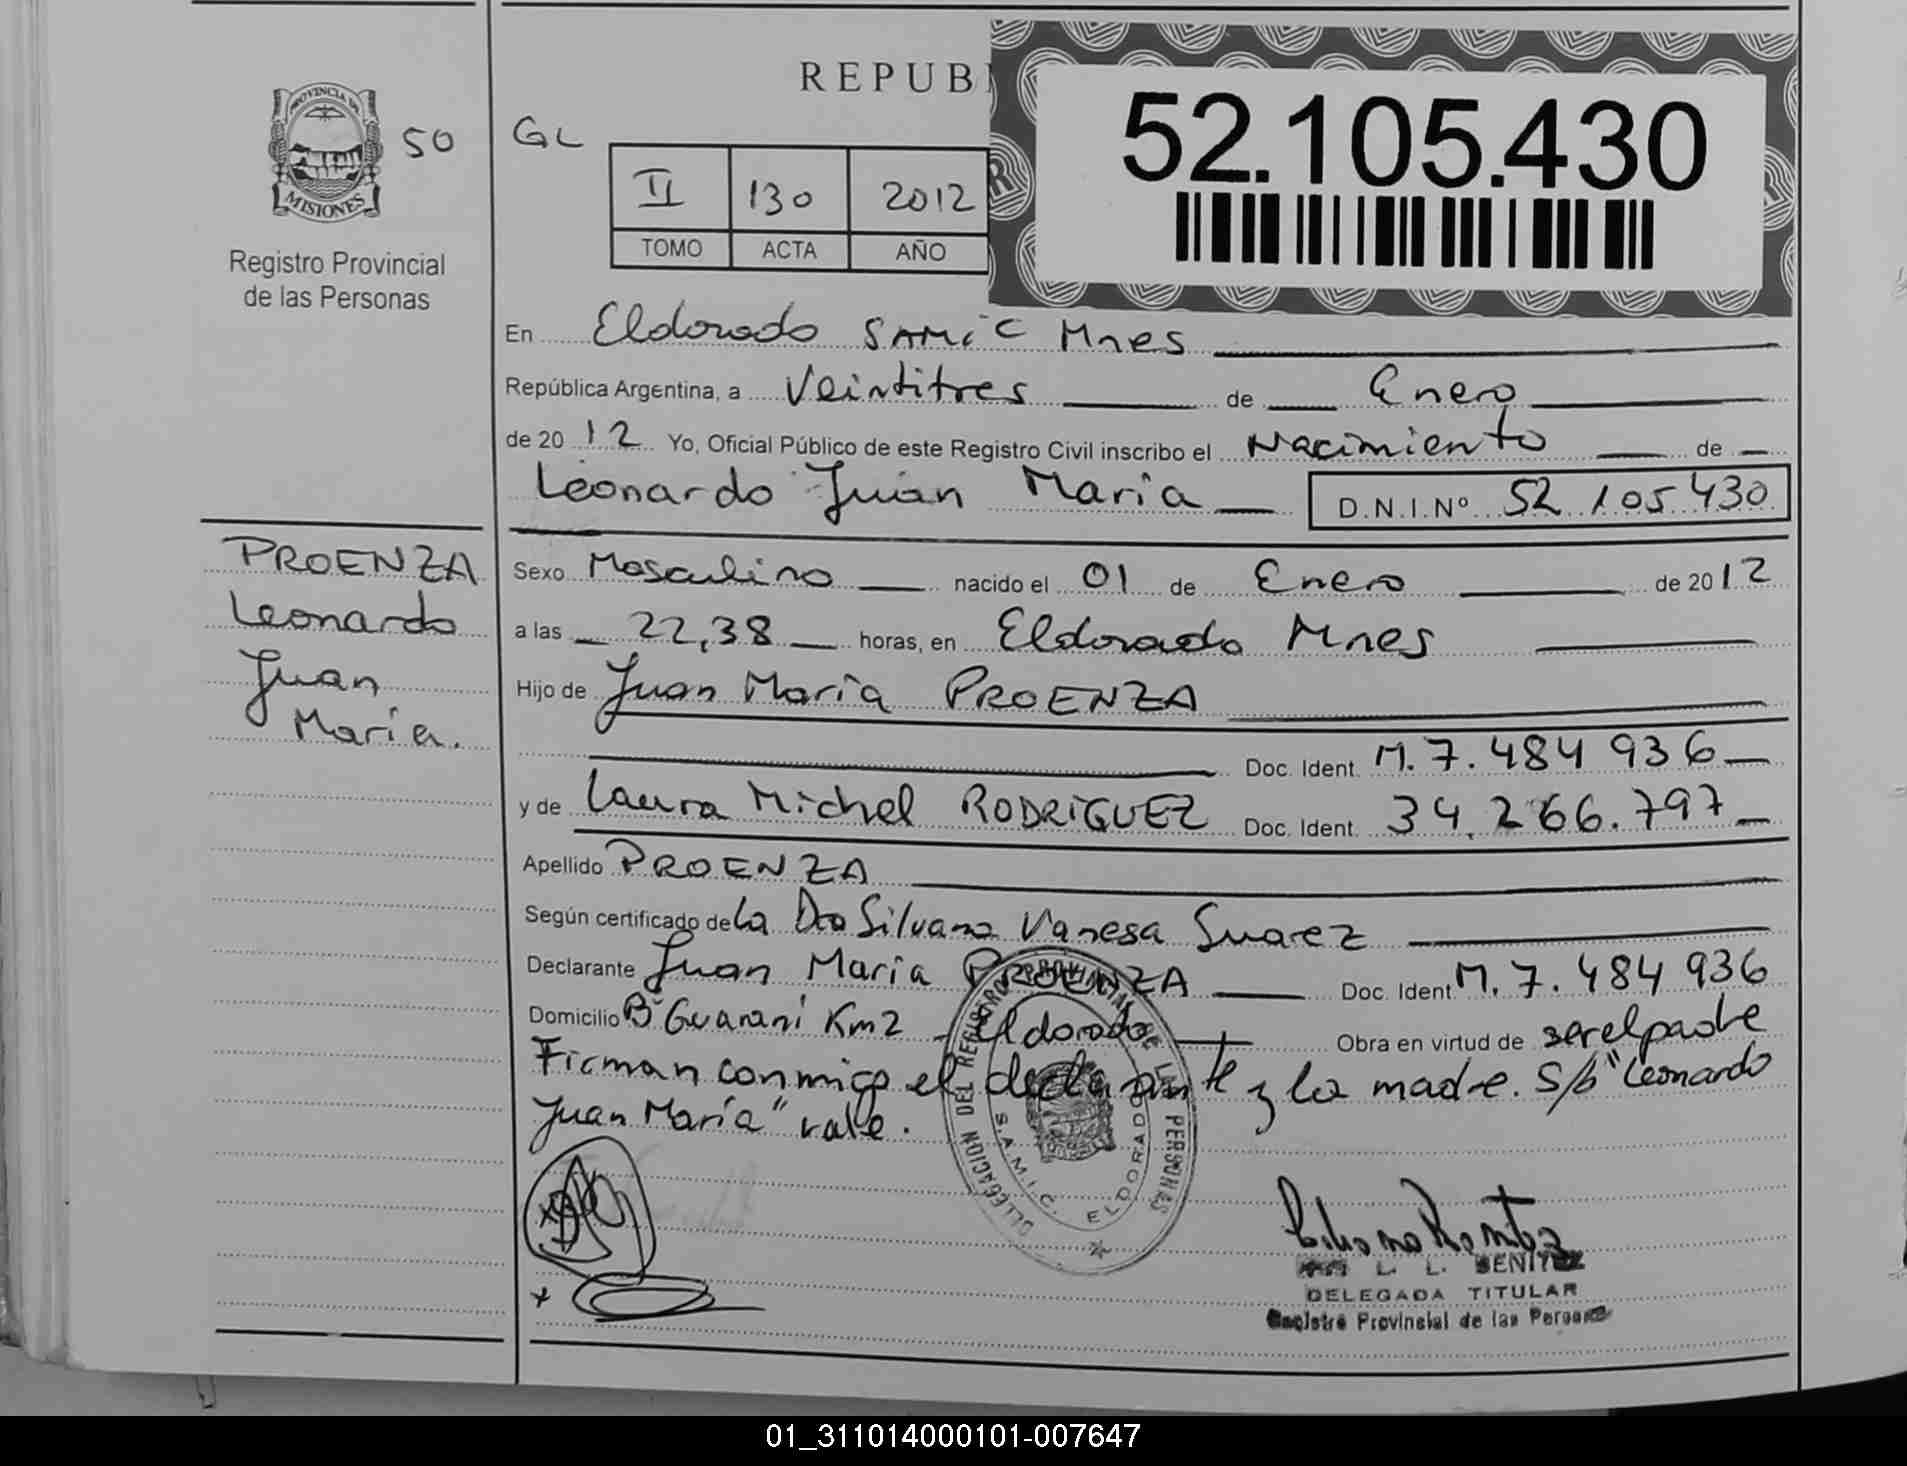 REPUB
52.105.430
PROVINCIA DE
MISIONES
50
GL
II 130 2012
TOMO ACTA AÑO
Registro Provincial
de las Personas
En Eldorado SAMiC Mnes
República Argentina, a Veintitres de Enero
de 2012 Yo, Oficial Público de este Registro Civil inscribo el Nacimiento de
Leonardo Juan Maria D.N.I.Nº 52.105.430
PROENZA
Leonardo
Juan
María.
Sexo Masculino nacido el 01 de Enero de 2012
a las 22,38 horas, en Eldorado Mnes
Hijo de Juan María PROENZA
Doc. Ident. M. 7.484 936
y de Laura Michel RODRiGUEZ Doc. Ident. 34.266.797
Apellido PROENZA
Según certificado de La Dra Silvana Vanesa Suarez
Declarante Juan María PROENZA Doc. Ident. M. 7. 484 936
Domicilio Bº Guaraní Km2 Eldorado Obra en virtud de ser el padre
Firman conmigo el declarante y la madre. S/b "Leonardo
Juan María" vale.
DELEGACION DEL REGISTRO PROVINCIAL DE LAS PERSONAS
S.A.M.I.C. ELDORADO
L. L. BENITEZ
DELEGADA TITULAR
Registro Provincial de las Personas
01_311014000101-007647